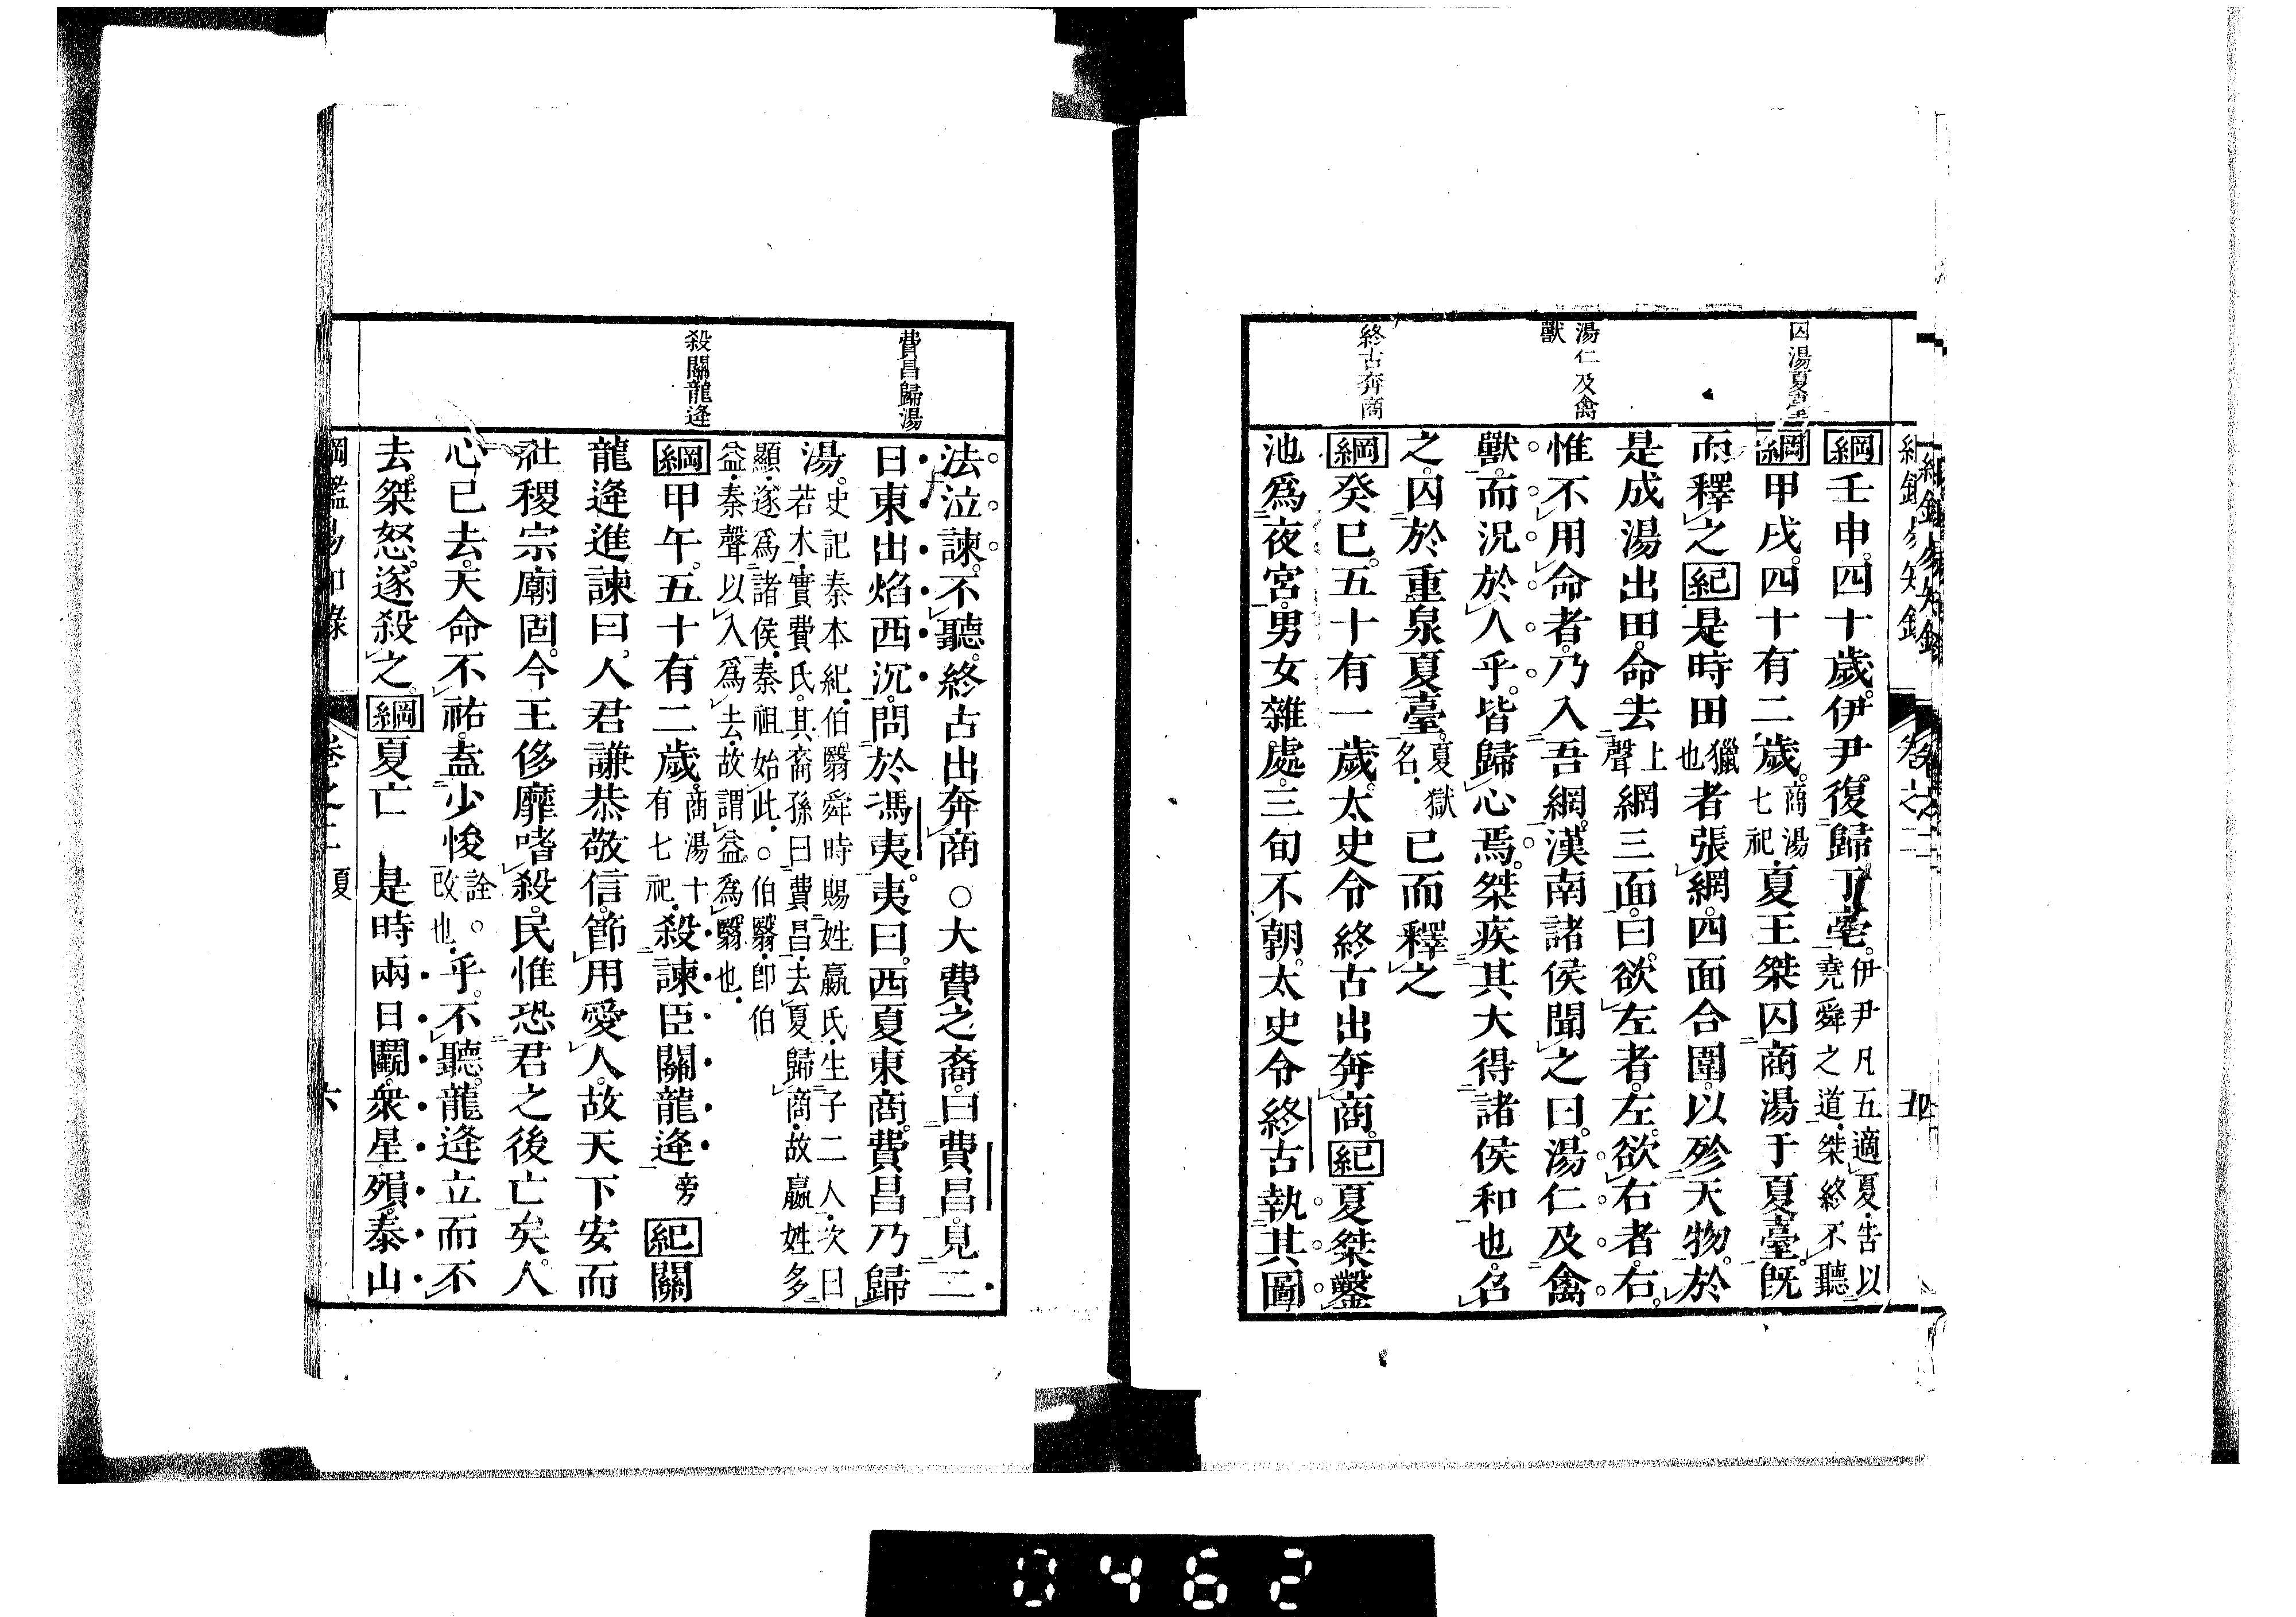 囚湯夏臺
湯仁及禽
獸
終古奔商
綱壬申。四十歲。伊尹。復歸于亳。伊尹凡五適夏。告以
堯舜之道。桀終不聽
綱甲戌。四十有二歲。商湯
七祀。夏王桀囚商湯于夏臺。旣
而釋之紀是時田獵
也者張網。四面合圍。以殄天物。於
是成湯出田。命去上
聲網三面。曰。欲左者。左。欲右者。右。
惟不用命者。乃入吾網。漢南諸侯聞之曰。湯仁及禽
獸。而況於人乎。皆歸心焉。桀疾其大得諸侯和也。召
之。囚於重泉夏臺。夏獄
名。已而釋之
綱癸巳。五十有一歲。太史令終古出奔商。紀夏桀鑿
池爲夜宮。男女雜處。三旬不朝。太史令終古執其圖
費昌歸湯
殺關龍逄
法泣諫。不聽。終古出奔商○大費之裔。曰費昌。見二
日東出焰西沉。問於馮夷。夷曰。西夏東商。費昌乃歸
湯。史記秦本紀。伯翳舜時賜姓嬴氏。生子二人。次曰
若木。實費氏。其裔孫曰費昌。去夏歸商。故嬴姓多
顯。遂爲諸侯。秦祖始此。○伯翳。卽伯
益。秦聲以入爲去。故謂益爲翳也。
綱甲午。五十有二歲。商湯十
有七祀。殺諫臣關龍逄旁紀關
龍逄進諫曰。人君謙恭敬信。節用愛人。故天下安而
社稷宗廟固。今王侈靡嗜殺。民惟恐君之後亡矣。人
心已去。天命不祐。盍少悛詮。○
改也。乎。不聽。龍逄立而不
去。桀怒。遂殺之。綱夏亡 是時兩日鬬。衆星殞。泰山
綱鑑易知錄 卷之二 夏 六